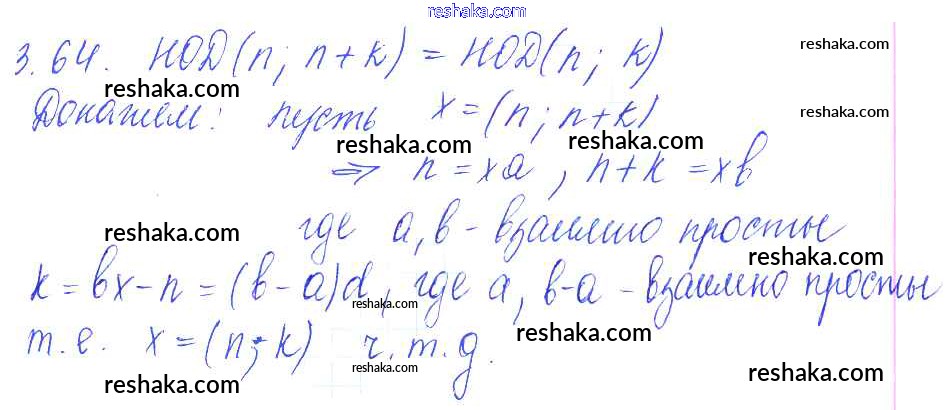 www.reshaka.com
3.64. НОД(n; n+k) = НОД(n; k)
reshaka.com
reshaka.com
Докажем: пусть x = (n; n+k)
reshaka.com
reshaka.com
reshaka.com
=> n = xa, n+k = xв
где a, в - взаимно простые
reshaka.com
reshaka.com
reshaka.com
k = вx - n = (в - a)d, где a, в-a - взаимно просты
reshaka.com
reshaka.com
т.е. x = (n; k) ч.т.д.
reshaka.com
reshaka.com
reshaka.com